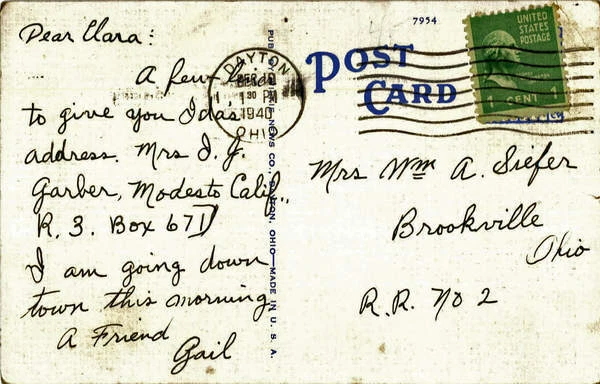 Dear Clara:
A few
to give you Idas
address. Mrs I. J.
Garber, Modesto Calif.,
R. 3. Box 671
I am going down
town this morning
A Friend
Gail
7954
POST
CARD
UNITED
STATES
POSTAGE
1 CENT 1
DAYTON
1 30 PM
1940
OHIO
NEWS CO., DAYTON, OHIO—MADE IN U. S. A.
Mrs Wm A. Siefer
Brookville
Ohio
R.R. No 2